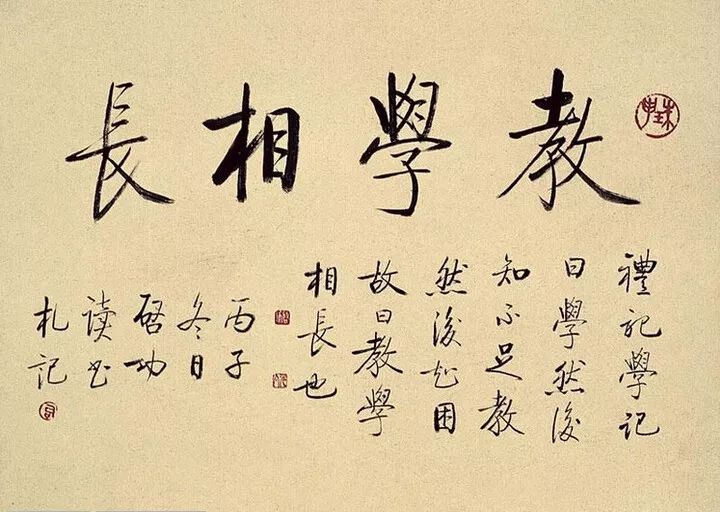 教學相長
禮記學記
曰學然後
知不足教
然後知困
故曰教學
相長也
丙子
冬日
啓功
讀書
札記